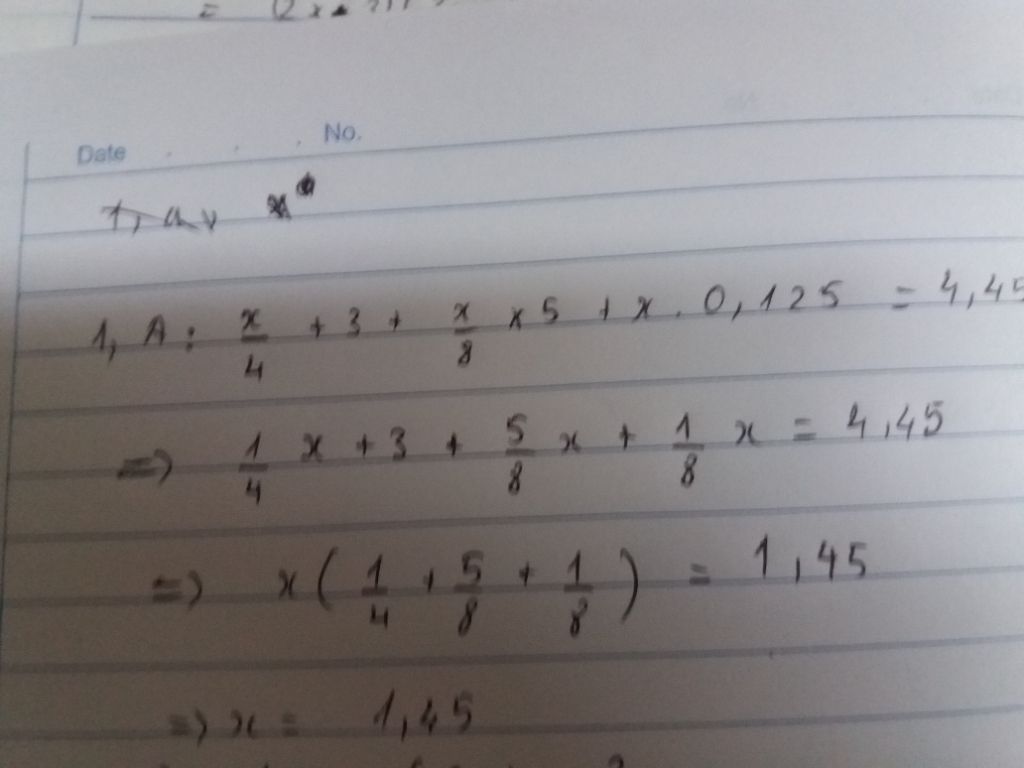 Date No.
1, A: x/4 + 3 + x/8 x 5 + x . 0,125 = 4,45
=> 1/4 x + 3 + 5/8 x + 1/8 x = 4,45
=> x ( 1/4 + 5/8 + 1/8 ) = 1,45
=> x = 1,45